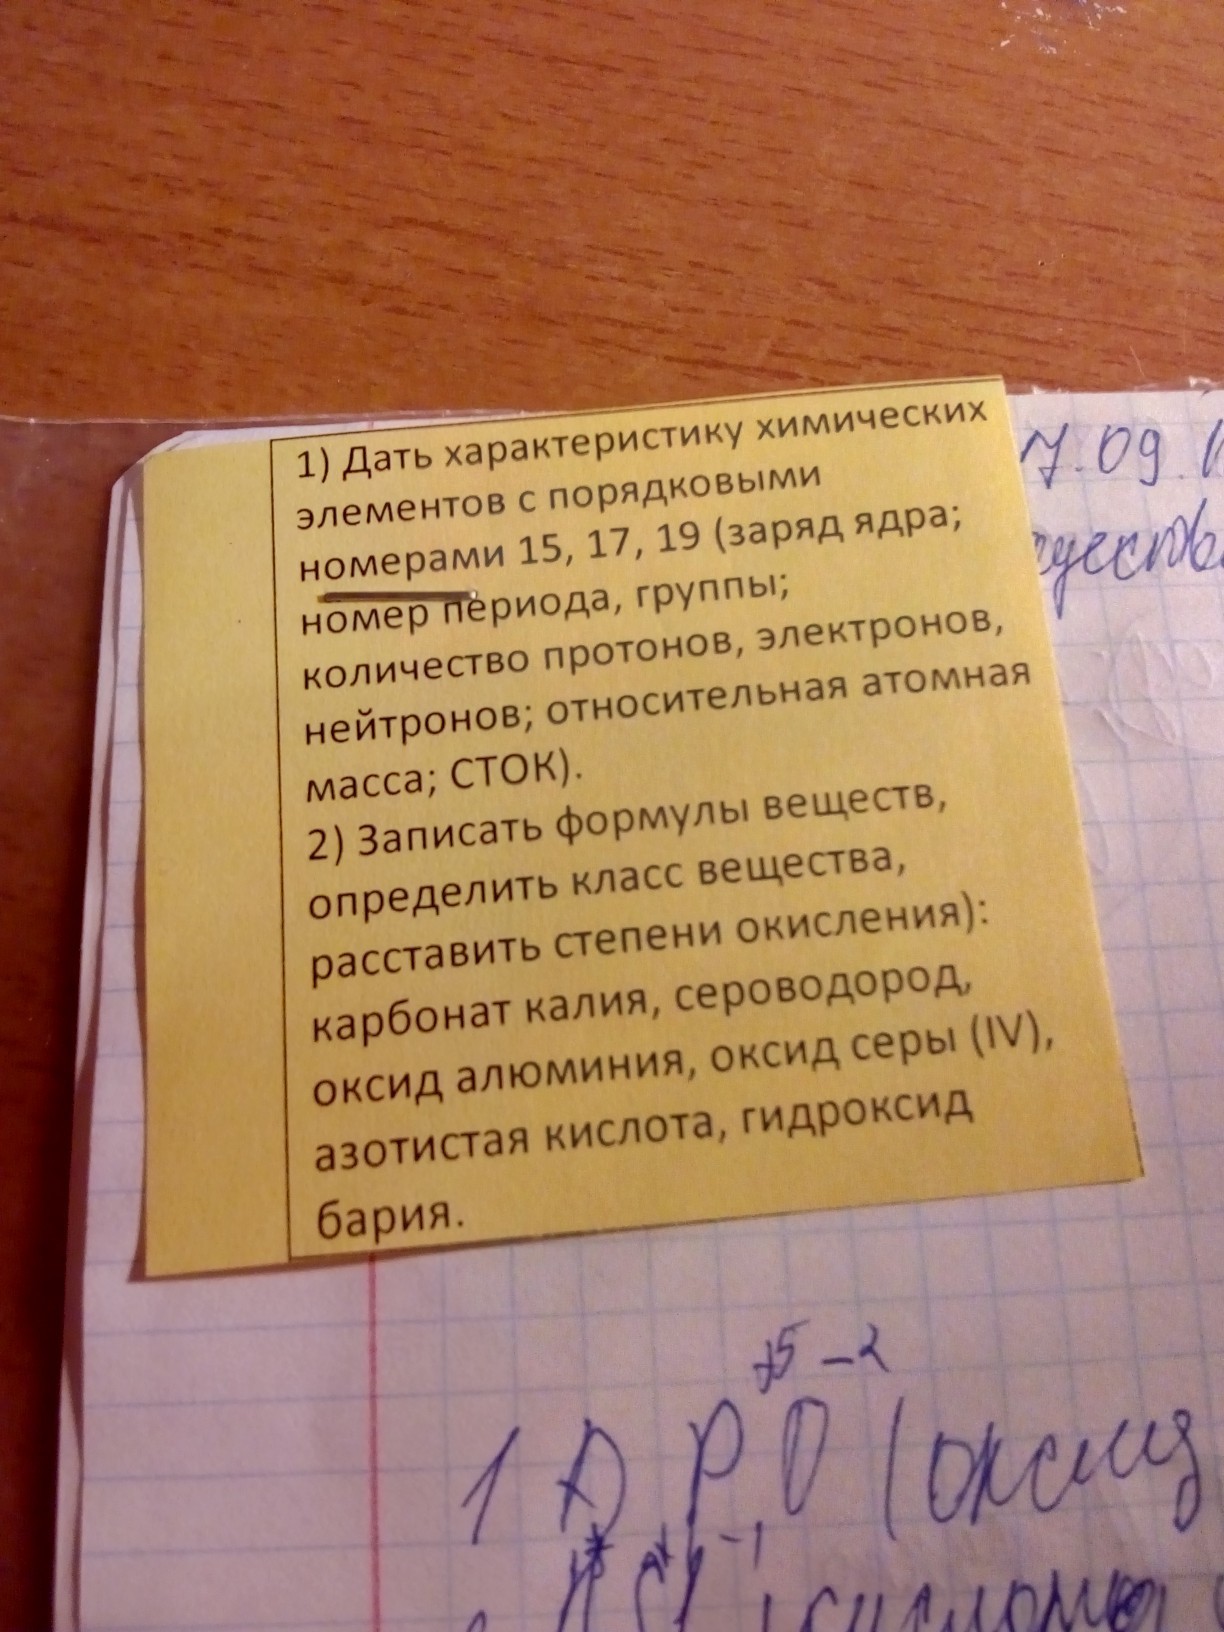 1) Дать характеристику химических
элементов с порядковыми
номерами 15, 17, 19 (заряд ядра;
номер периода, группы;
количество протонов, электронов,
нейтронов; относительная атомная
масса; СТОК).
2) Записать формулы веществ,
определить класс вещества,
расставить степени окисления):
карбонат калия, сероводород,
оксид алюминия, оксид серы (IV),
азотистая кислота, гидроксид
бария.
7.09
+5 -2
1 P O (оксид
-1